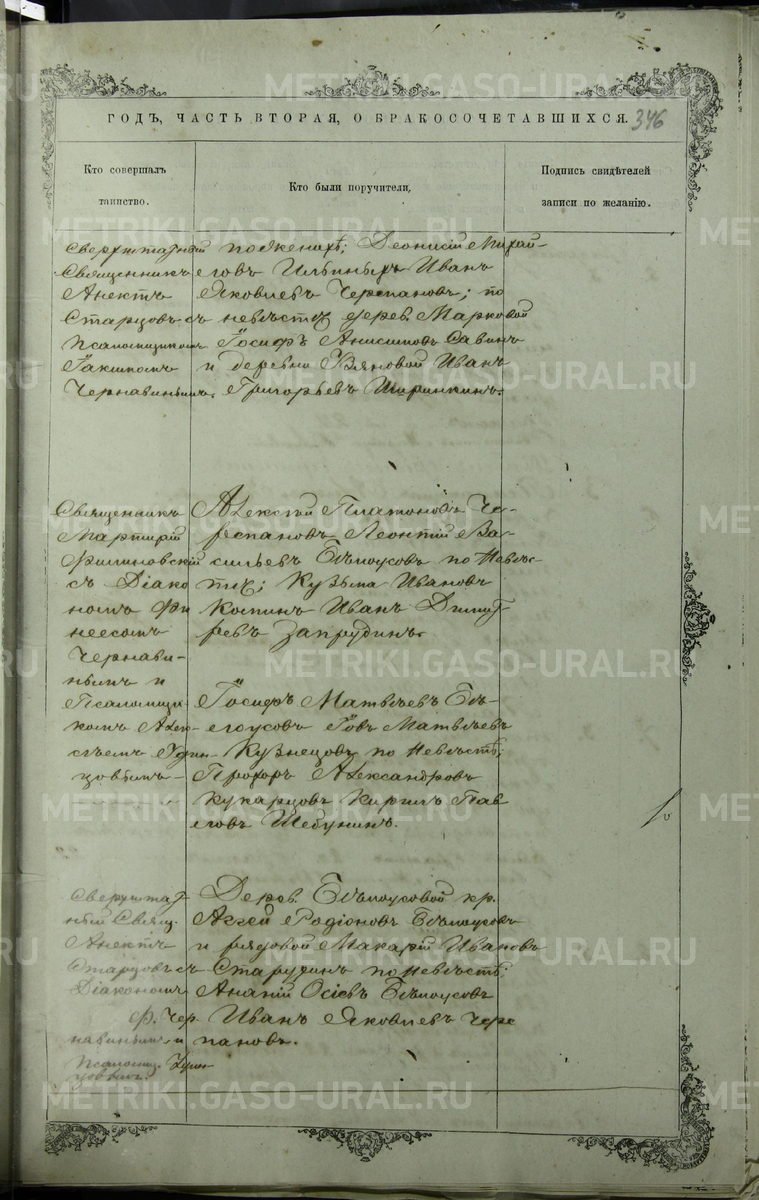 ГОДЪ, ЧАСТЬ ВТОРАЯ, О БРАКОСОЧЕТАВШИХСЯ. 346
Кто совершалъ
таинство.
Кто были поручители,
Подпись свидѣтелей
записи по желанію.
Сверхштатный
Священникъ
Анектъ
Старцовъ съ
Псаломщикомъ
Чернавинымъ.
по женихѣ; Деонисій Михай-
ловъ Ильиныхъ Иванъ
Яковлевъ Черепановъ; по
невѣстѣ дерев. Марковой
Іосифъ Анисимовъ Савинъ
и деревни Иванъ
Григорьевъ Ширинкинъ.
Священникъ
Мартирій
Филиновскій
съ Діако
номъ Фи
неесомъ
Чернави-
нымъ и
Псаломщи-
комъ Алек-
сѣемъ Удин-
цовымъ
Алексѣй Платоновъ Че-
репановъ Леонтій Ва-
сильевъ Бѣлоусовъ по Невѣс-
тѣ; Кузьма Ивановъ
Костинъ Иванъ Дмит
ревъ Запрудинъ.
Іосифъ Матвѣевъ Бѣ-
лоусовъ Іовъ Матвѣевъ
Кузнецовъ по Невѣстѣ;
Прохоръ Александровъ
Кукарцовъ Кирилъ Пав
ловъ Шебунинъ.
Сверхштат
ный Свящ.
Анектъ
Старцовъ съ
Діакономъ
Ф. Чер
навинымъ и
Псаломщ. Удин
цовым.
Дерев. Бѣлоусовой кр.
Аггей Родіоновъ Бѣлоусовъ
и рядовой Макарій Ивановъ
по Невѣстѣ;
Ананій Осіевъ Бѣлоусовъ
Иванъ Яковлевъ Чере
пановъ.
METRIKI.GASO-URAL.RU